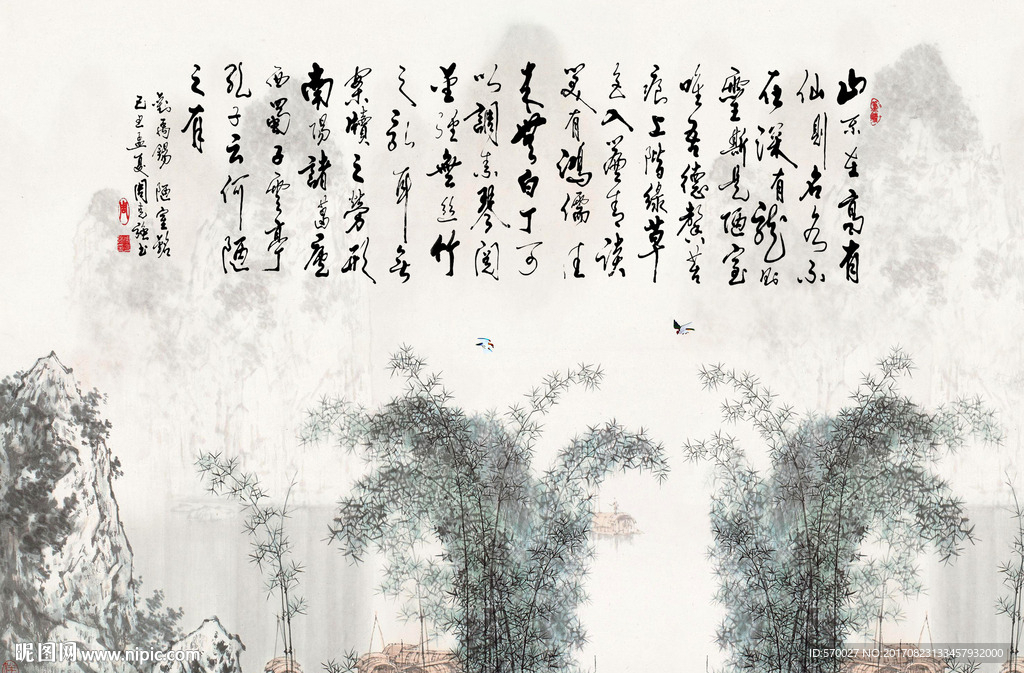 山不在高有
仙則名水不
在深有龍則
靈斯是陋室
唯吾德馨苔
痕上階綠草
色入簾青談
笑有鴻儒往
來無白丁可
以調素琴閱
金經無絲竹
之亂耳無
案牘之勞形
南陽諸葛廬
西蜀子雲亭
孔子云何陋
之有
劉禹錫 陋室銘
己丑孟夏周強書
昵图网 www.nipic.com
ID:570027 NO:20170823133457932000